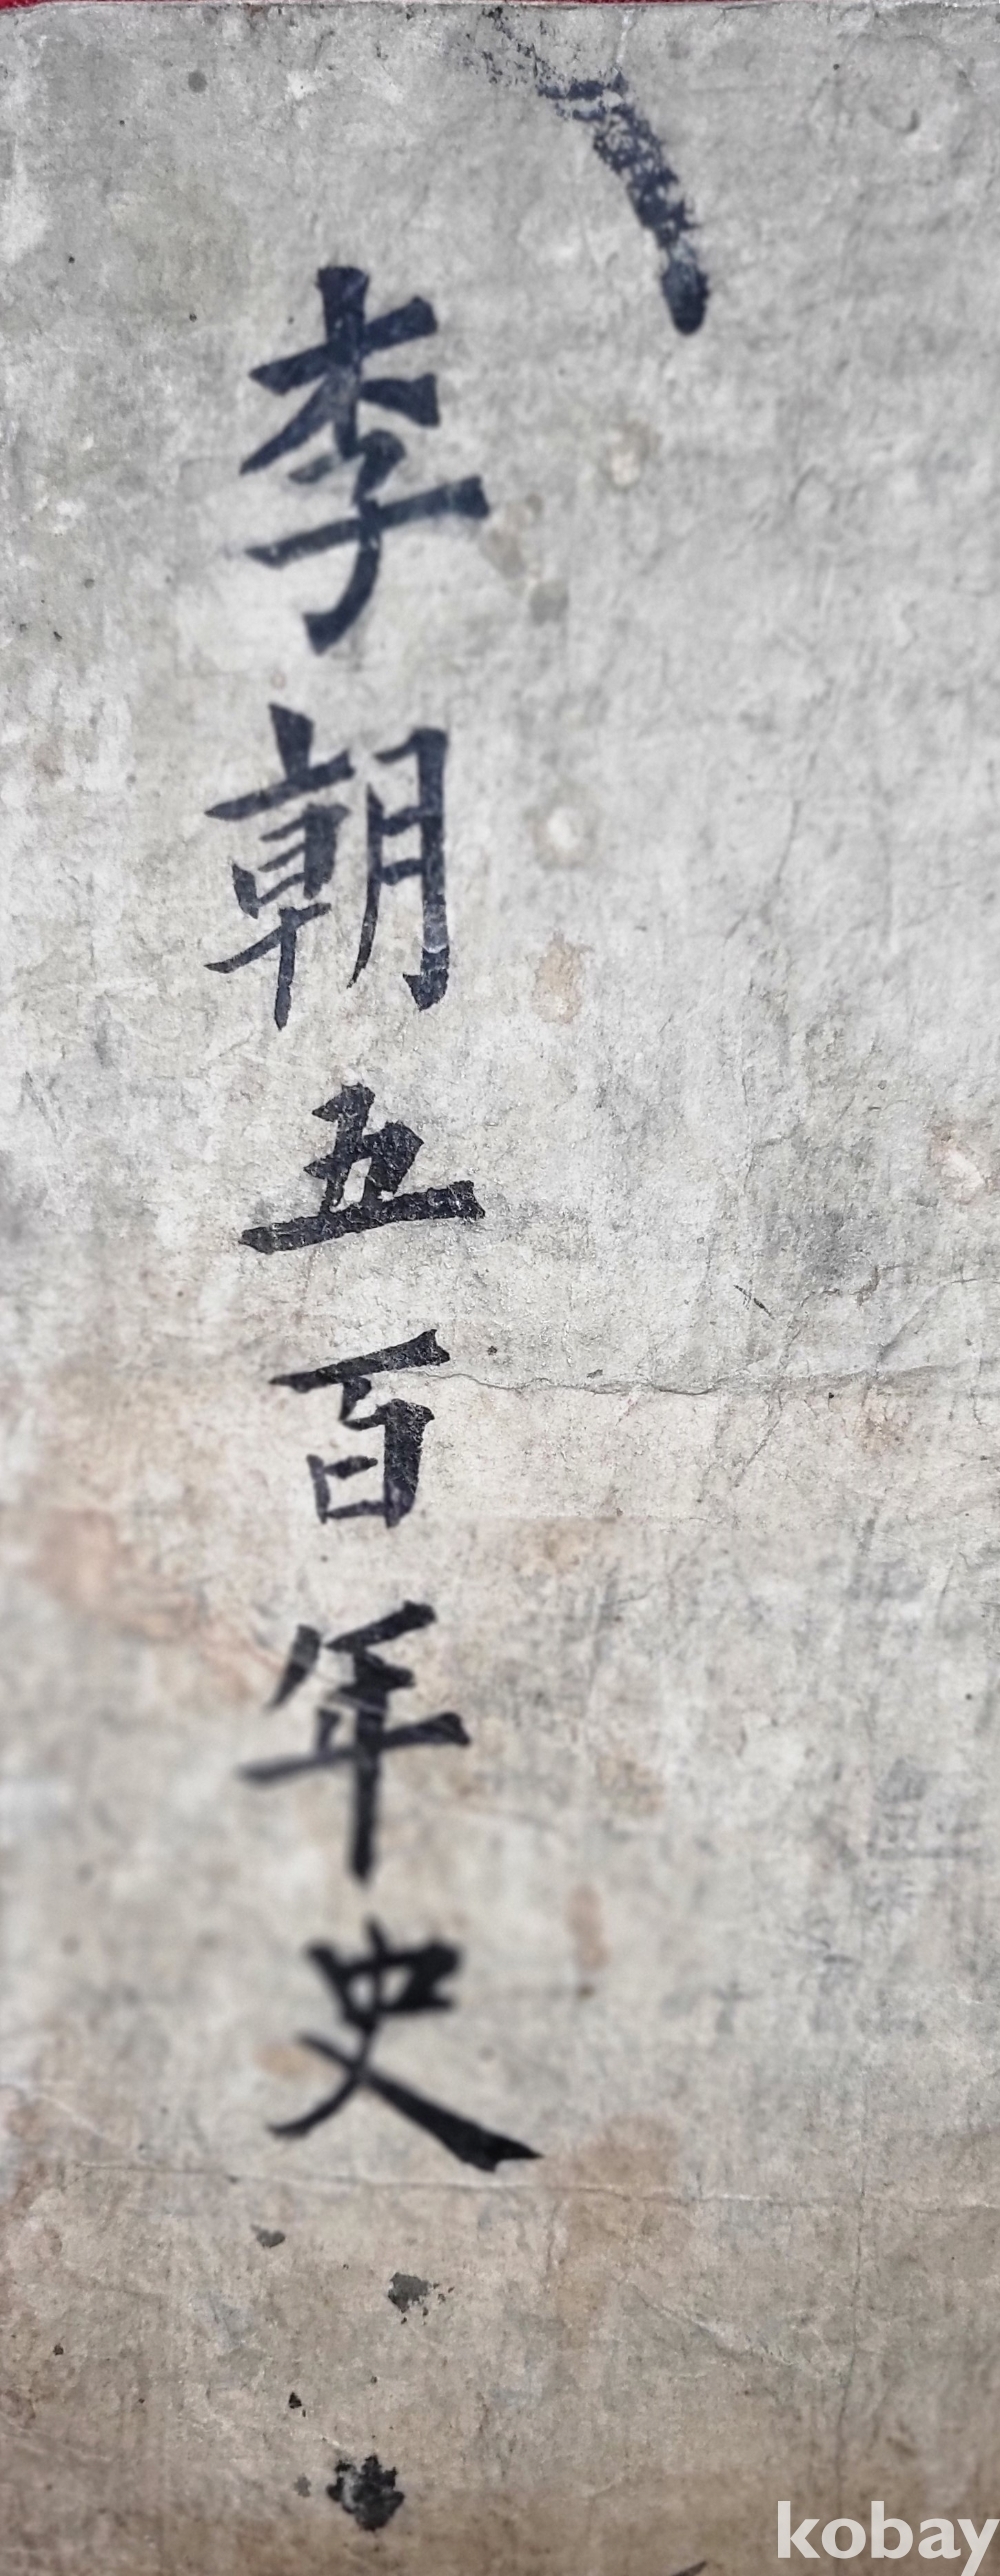 李朝五百年史
kobay